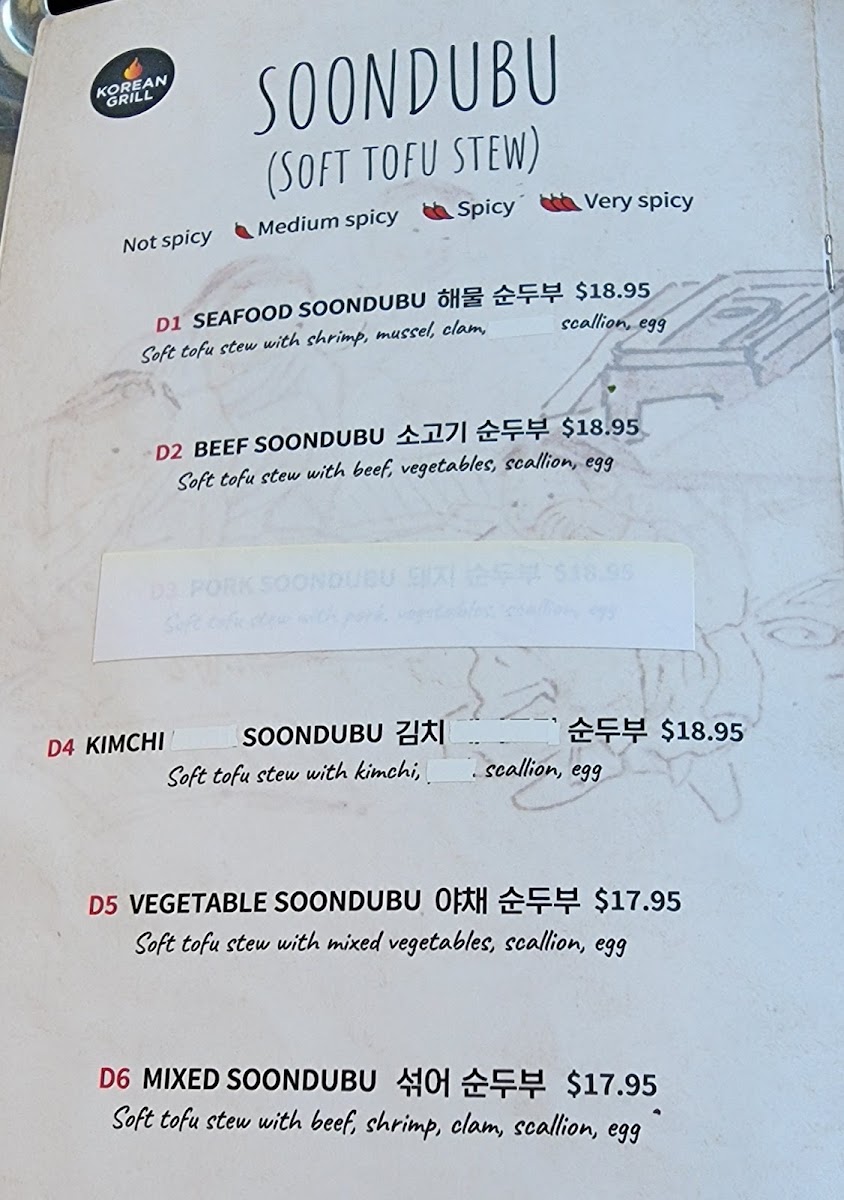 KOREAN
GRILL
SOONDUBU
(SOFT TOFU STEW)
Not spicy Medium spicy Spicy Very spicy
D1 SEAFOOD SOONDUBU 해물 순두부 $18.95
Soft tofu stew with shrimp, mussel, clam, scallion, egg
D2 BEEF SOONDUBU 소고기 순두부 $18.95
Soft tofu stew with beef, vegetables, scallion, egg
D3 PORK SOONDUBU 돼지 순두부 $18.95
Soft tofu stew with pork, vegetables, scallion, egg
D4 KIMCHI SOONDUBU 김치 순두부 $18.95
Soft tofu stew with kimchi, scallion, egg
D5 VEGETABLE SOONDUBU 야채 순두부 $17.95
Soft tofu stew with mixed vegetables, scallion, egg
D6 MIXED SOONDUBU 섞어 순두부 $17.95
Soft tofu stew with beef, shrimp, clam, scallion, egg